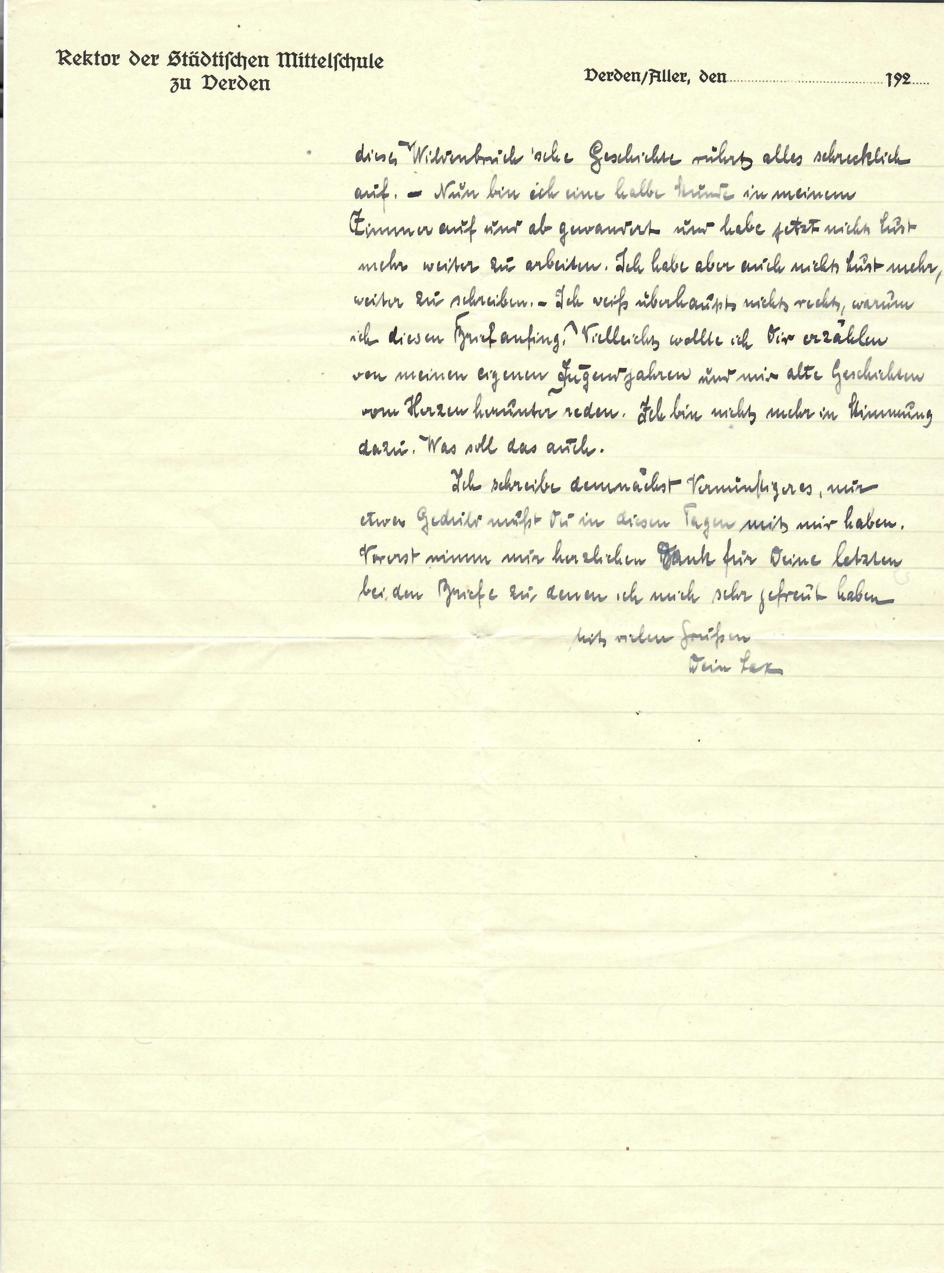 Rektor der Städtischen Mittelschule
zu Verden
Verden/Aller, den 192
diese Wildenbruch'sche Geschichte rührt alles schrecklich
auf. – Nun bin ich eine halbe Stunde in meinem
Zimmer auf und ab gewandert und habe jetzt nicht Lust
mehr weiter zu arbeiten. Ich habe aber auch nicht Lust mehr,
weiter zu schreiben. – Ich weiß überhaupt nicht recht, warum
ich diesen Brief anfing. Vielleicht wollte ich Dir erzählen
von meinen eigenen Jugendjahren und mir alte Geschichten
vom Herzen herunter reden. Ich bin nicht mehr in Stimmung
dazu. Was soll das auch.
Ich schreibe demnächst Vernünftigeres, nur
etwas Geduld mußt Du in diesen Tagen mit mir haben.
Vorerst nimm nur herzlichen Dank für Deine letzten
beiden Briefe zu denen ich mich sehr gefreut habe
Mit vielen Grüßen
Dein Lex